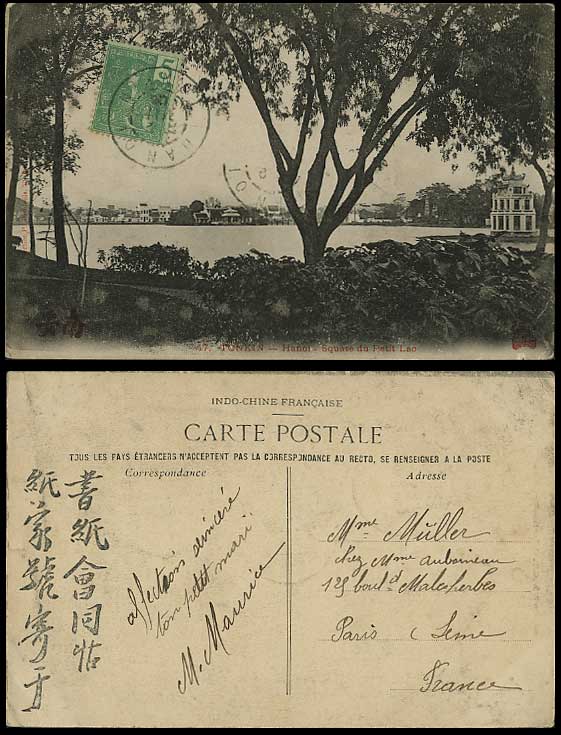 47. TONKIN — Hanoi - Square du Petit Lac
INDO-CHINE FRANÇAISE
CARTE POSTALE
TOUS LES PAYS ÉTRANGERS N'ACCEPTENT PAS LA CORRESPONDANCE AU RECTO, SE RENSEIGNER A LA POSTE
Correspondance
Adresse
書紙會同帖
紙家號寄于
affection sincère
ton petit mari
M. Maurice
Mme Müller
chez Mme Aubineau
125 boul^d Malesherbes
Paris (Seine
France